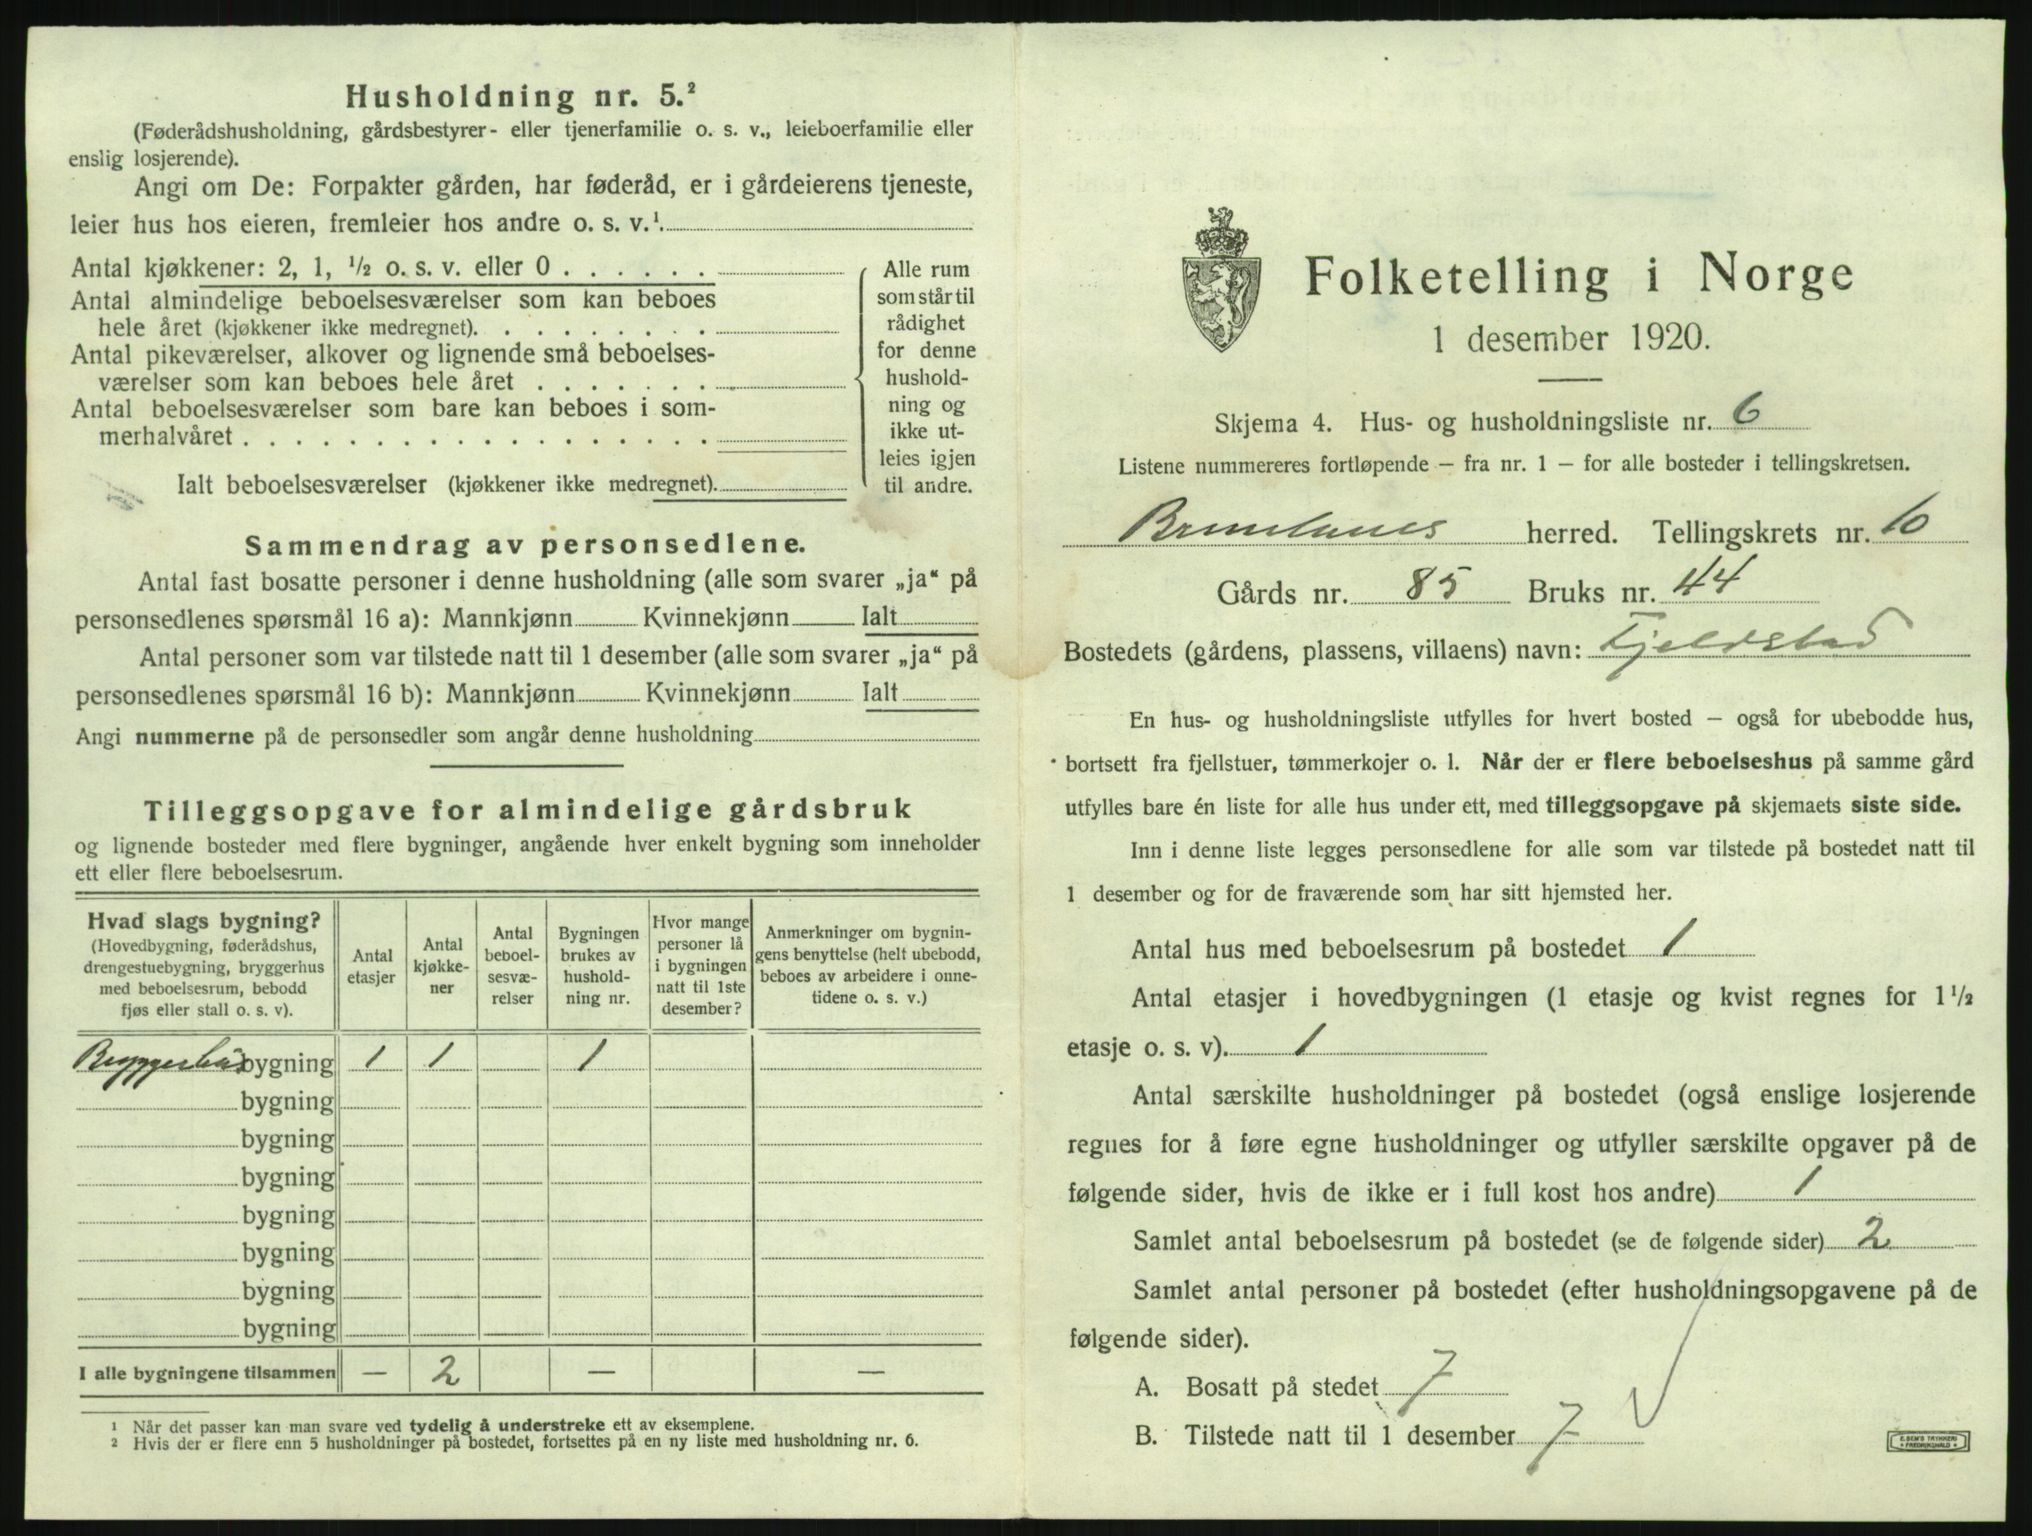 Husholdning nr. 5.²
(Føderådshusholdning, gårdsbestyrer- eller tjenerfamilie o. s. v., leieboerfamilie eller
enslig losjerende).
Angi om De: Forpakter gården, har føderåd, er i gårdeierens tjeneste,
leier hus hos eieren, fremleier hos andre o. s. v.¹.
Antal kjøkkener: 2, 1, ½ o. s. v. eller 0 . . . . . .
Antal almindelige beboelsesværelser som kan beboes
hele året (kjøkkener ikke medregnet). . . . . . . . .
Antal pikeværelser, alkover og lignende små beboelses-
værelser som kan beboes hele året . . . . . . .
Antal beboelsesværelser som bare kan beboes i som-
merhalvåret . . . . . . . . . . . . . . . . . .
Ialt beboelsesværelser (kjøkkener ikke medregnet).
Alle rum
som står til
rådighet
for denne
hushold-
ning og
ikke ut-
leies igjen
til andre.
Sammendrag av personsedlene.
Antal fast bosatte personer i denne husholdning (alle som svarer „ja“ på
personsedlenes spørsmål 16 a): Mannkjønn Kvinnekjønn Ialt
Antal personer som var tilstede natt til 1 desember (alle som svarer „ja“ på
personsedlenes spørsmål 16 b): Mannkjønn Kvinnekjønn Ialt
Angi nummerne på de personsedler som angår denne husholdning
Tilleggsopgave for almindelige gårdsbruk
og lignende bosteder med flere bygninger, angående hver enkelt bygning som inneholder
ett eller flere beboelsesrum.
Hvad slags bygning?
(Hovedbygning, føderådshus,
drengestuebygning, bryggerhus
med beboelsesrum, bebodd
fjøs eller stall o. s. v).
Antal
etasjer
Antal
kjøkke-
ner
Antal
beboel-
sesvæ-
relser
Bygningen
brukes av
hushold-
ning nr.
Hvor mange
personer lå
i bygningen
natt til 1ste
desember?
Anmerkninger om bygnin-
gens benyttelse (helt ubebodd,
beboes av arbeidere i onne-
tidene o. s. v.)
Bryggerhus bygning 1 1 1
bygning
bygning
bygning
bygning
bygning
bygning
bygning
I alle bygningene tilsammen — 2 — —
¹ Når det passer kan man svare ved tydelig å understreke ett av eksemplene.
² Hvis der er flere enn 5 husholdninger på bostedet, fortsettes på en ny liste med husholdning nr. 6.
Folketelling i Norge
1 desember 1920.
Skjema 4. Hus- og husholdningsliste nr. 6
Listene nummereres fortløpende — fra nr. 1 — for alle bosteder i tellingskretsen.
Brunlanes herred. Tellingskrets nr. 10
Gårds nr. 85 Bruks nr. 44
Bostedets (gårdens, plassens, villaens) navn: Fjeldstad
En hus- og husholdningsliste utfylles for hvert bosted — også for ubebodde hus,
bortsett fra fjellstuer, tømmerkojer o. l. Når der er flere beboelseshus på samme gård
utfylles bare én liste for alle hus under ett, med tilleggsopgave på skjemaets siste side.
Inn i denne liste legges personsedlene for alle som var tilstede på bostedet natt til
1 desember og for de fraværende som har sitt hjemsted her.
Antal hus med beboelsesrum på bostedet 1
Antal etasjer i hovedbygningen (1 etasje og kvist regnes for 1½
etasje o. s. v). 1
Antal særskilte husholdninger på bostedet (også enslige losjerende
regnes for å føre egne husholdninger og utfyller særskilte opgaver på de
følgende sider, hvis de ikke er i full kost hos andre) 1
Samlet antal beboelsesrum på bostedet (se de følgende sider) 2
Samlet antal personer på bostedet (efter husholdningsopgavene på de
følgende sider).
A. Bosatt på stedet 7
B. Tilstede natt til 1 desember 7
E. SEM'S TRYKKERI
FREDRIKSHALD